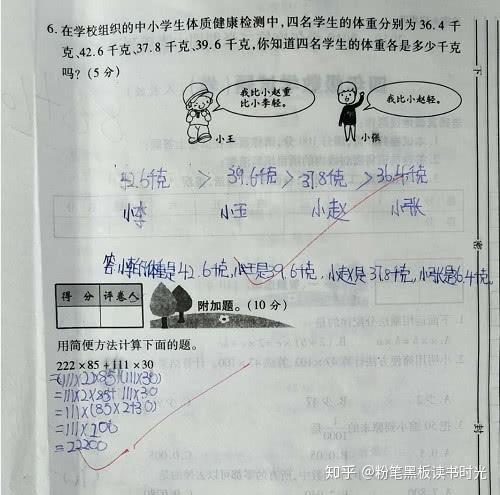 6. 在学校组织的中小学生体质健康检测中,四名学生的体重分别为36.4千
克、42.6千克、37.8千克、39.6千克,你知道四名学生的体重各是多少千克
吗?(5分)
我比小赵重
比小李轻。
我比小赵轻。
小王
小张
42.6千克 > 39.6千克 > 37.8千克 > 36.4千克
小李 小王 小赵 小张
答:小李体重是42.6千克,小王是39.6千克,小赵是37.8千克,小张是36.4千克
得分 评卷人
附加题。(10分)
用简便方法计算下面的题。
222×85+111×30
=(111×2×85)+(111×30)
=111×2×85+111×30
=111×(85×2+30)
=111×200
=22200
知乎 @粉笔黑板读书时光